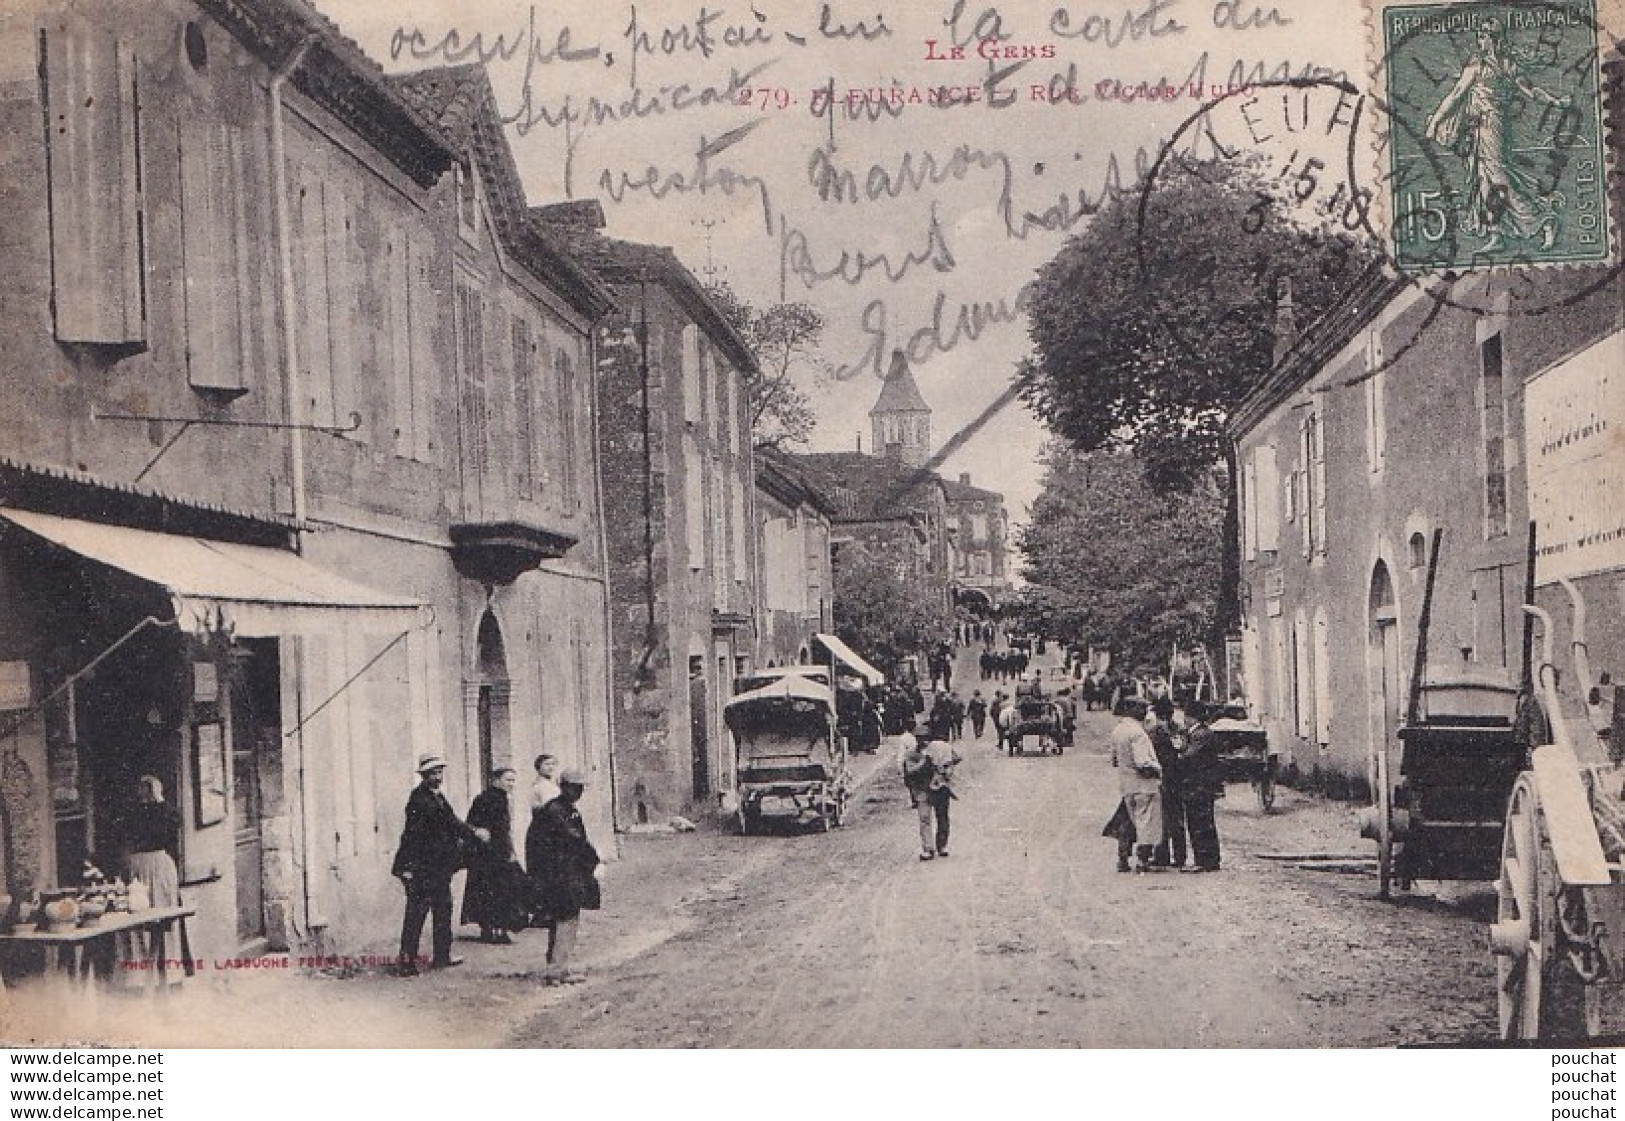 occupe, portai-lui la carte du
LE GERS
syndicat qui et dans mon
279. FLEURANCE - RUE VICTOR HUGO
veston marron.
bons baisers
Edou
RÉPUBLIQUE FRANÇAISE
15c
POSTES
FLEUR
15 10
3
PHOTOTYPIE LABOUCHE FRÈRES TOULOUSE
www.delcampe.net
www.delcampe.net
www.delcampe.net
www.delcampe.net
pouchat
pouchat
pouchat
pouchat